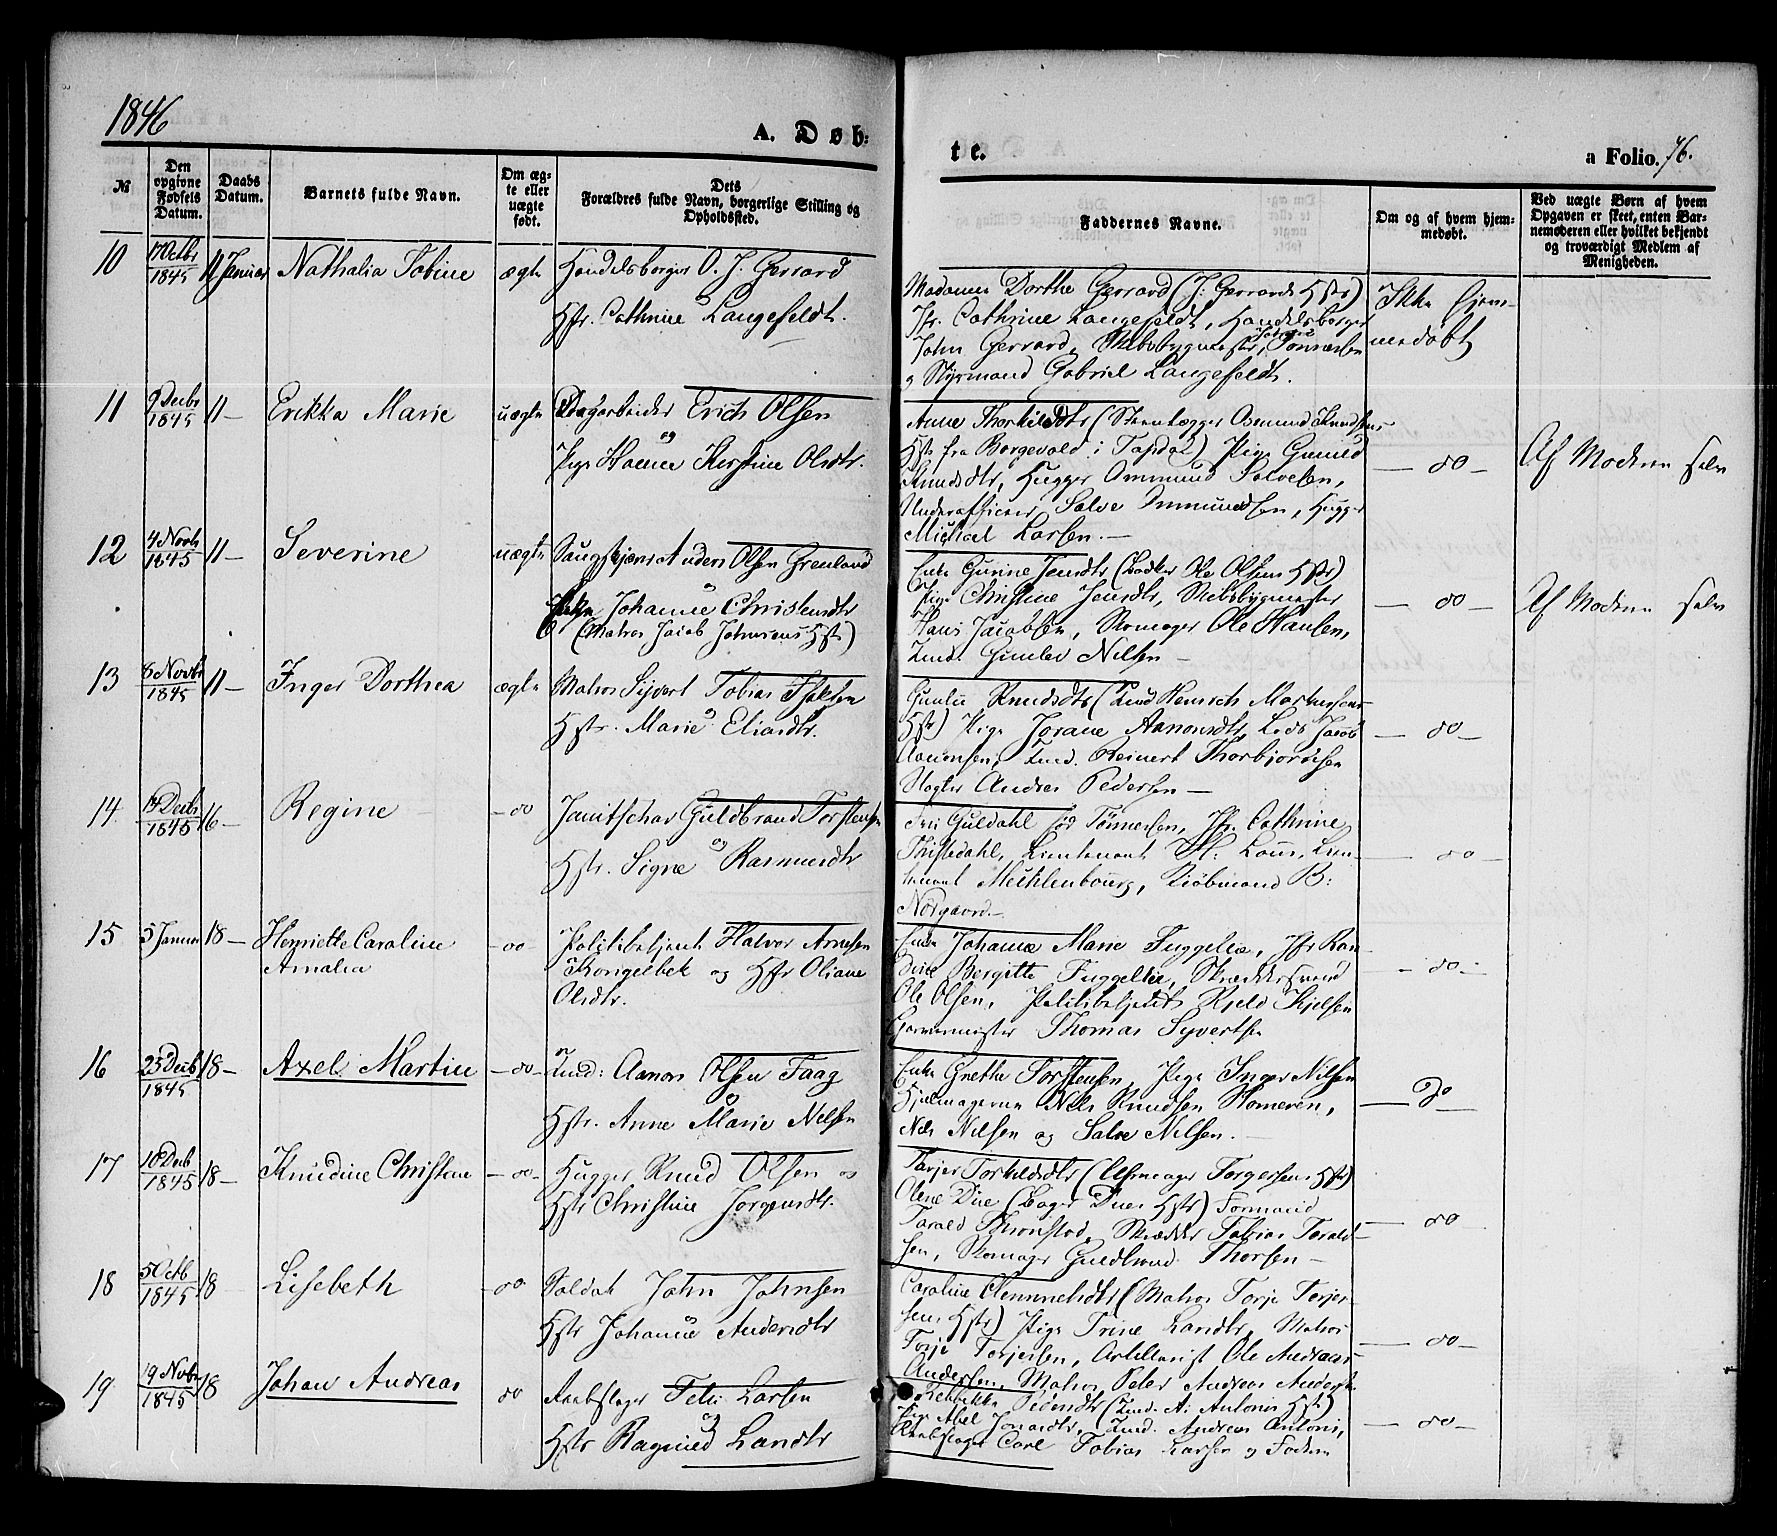 1846
A. Døb:
te.
a Folio. 76.
№
Den opgivne Fødsels Datum.
Daabs Datum.
Barnets fulde Navn.
Om ægte eller uægte født.
Dets Forældres fulde Navn, borgerlige Stilling og Opholdssted.
Faddernes Navne.
Om og af hvem hjemmedøbt.
Ved uægte Børn af hvem Opgaven er skeet, enten Barnemoderen eller hvilket bekjendt og troværdigt Medlem af Menigheden.
10 17 Octbr 1845 11 Januar Nathalia Tobine ægte Handelsborger O. J. Gerrard
og
Hstr. Cathrine Langefeldt.
Madame Dorthe Gerrard (J: Gerrards Hstr)
Jfr. Cathrine Langefeldt, Handelsborger
John Gerrard, Skibsbygmester Tønnesen
og Styrmand Gabriel Langefeldt.
Ikke hjem-
medøbt
11 9 Decbr 1845 11 – Erikka Marie uægte Dagarbeider Erich Olsen
og
Pige Hanne Kirstine Olsdtr.
Anne Thorkildsdtr (Steenlægger Osmund Knudsens
Hstr fra Borgevold i Topdal) Pige Gunild
Knudsdtr, Hugger Ommund Salvesen,
Underofficier Salve Ommundsen, Hugger
Michael Larsen. –
– do –
Af Moderen selv
12 4 Novb 1845 11 – Severine uægte Anders Olsen Grenland
og
Enke Johanne Christensdtr
(Matros Jacob Johnsens Hstr)
Enke Gurine Jensdtr (Bødker Ole Olsens Hstr)
Pige Christine Jensdtr, Skibsbygmester
Hans Jacobsen, Skomager Ole Hansen,
Tmd. Gunlev Nilsen –
– do –
Af Moderen selv
13 8 Novbr 1845 11 – Inger Dorthea ægte Matros Syvert Tobias
og
Hstr. Marie Eliasdtr.
Knudsdtr (Tmd Henrich Mortensens
Hstr) Pige Jorane Aanonsdtr, Lods Jacob
Aanonsen, Tmd. Reinert Thorbjørnsen
Slagter Andreas Pedersen –
– do –
14. 14 Decbr 1845 16 – Regine – do Janitschar Guldbrand Torstensen
og
Hstr. Signe Rasmusdtr
Guldahl Tønnesen, Jfr. Cathrine
Thistedahl, Lieutenant Lous, Lieu-
tenant Mechlenbourg, Kiøbmand B:
Nørgaard –
– do –
15 5 Januar 18 – Henriette Caroline
Amalia
– do – Politibetjent Halvor Arnesen
Kongelbek og Hstr Oliane
Olsdtr.
Enke Johanne Marie Fuggelie, Jfr Ran-
dine Bergitte Fuggelie, Skræddersvend
Ole Olsen, Politibetjent Kjeld Kjelsen
Garvermester Thomas Syvertsen
– do –
16 25 Decb 1845 18 – Axel Martin – do – Tmd: Aanon Olsen Faag
og
Hstr. Anne Marie Nelsen
Enke Grethe Torstensen, Pige Inger Nilsen
Niels Knudsen Homeren,
Niels Nilsen og Salve Nilsen. –
– do –
17 18 Decb 1845 18 – Knudine Christine – do – Hugger Knud Olsen og
Hstr Christine Jørgensdtr.
Torkildsdtr (Torgersens Hstr)
Olene Due (Bager Dues Hstr) Formand
Tarald Thronstad, Skrædder Tobias Tarald-
sen, Skomager Guldbrand Thorsen –
– do
18 5 Octb 1845 18 Lisebeth – do Soldat John Johnsen
Hstr Johanne Andersdtr
Caroline (Matros Torje Torjes-
sens Hstr) Pige Trine Larsdtr, Matros
Torje Torjesen, Artillerist Ole Andreas
Andersen, Matros Peter Andreas
– do –
19. 19 Novbr 1845 18 Johan Andreas do Larsen
og
Hstr Ragnild Larsdtr
Rebekka (Tmd. A: Antonis Hstr)
Pige Abel Jonasdtr, Tmd. Andreas Antonis,
Carl Tobias Larsen og Faderen
– do –